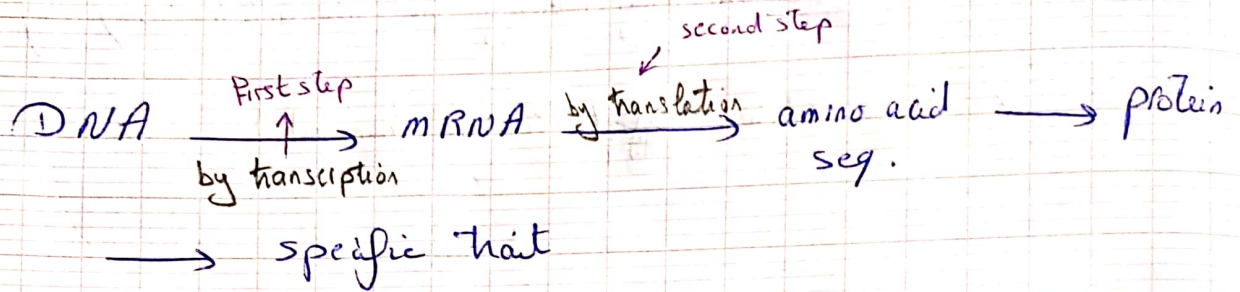 second step
First step
DNA → mRNA by translation → amino acid → protein
by transcription seq.
→ specific trait